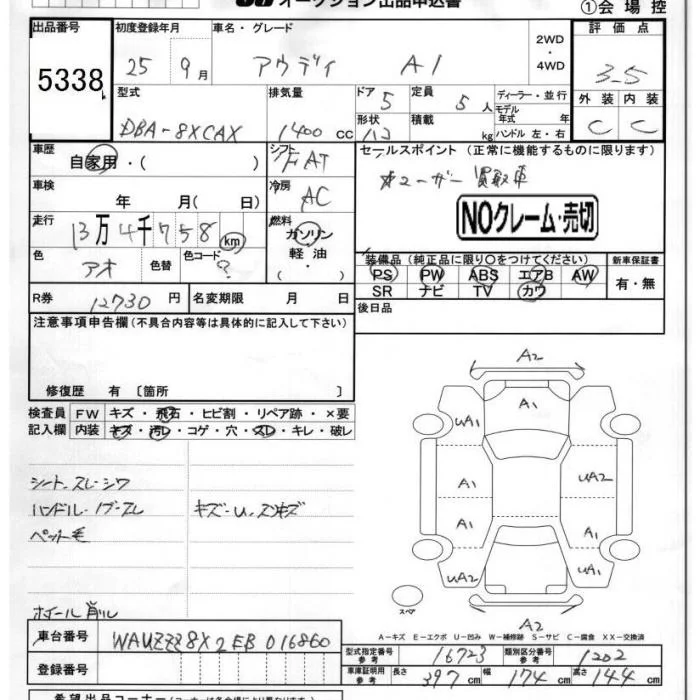 オークション出品申込書
①会場控
出品番号 初度登録年月 車名・グレード 2WD・4WD 評価点
5338 25 9月 アウディ A1 3-5
型式 排気量 ドア 5 定員 5人 ディーラー・並行 外装 内装
モデル年式 年
DBA-8XCAX 1400cc 形状 積載 kg ハンドル 左・右 C C
車歴 自家用・( ) シフト FAT セールスポイント (正常に機能するものに限ります)
車検 年 月( 日) 冷房 AC ユーザー買取車
走行 13万4千758km 燃料 ガソリン・軽油・( ) NOクレーム・売切
色 アオ 色替 色コード ? 装備品(純正品に限り〇をつけてください) 新車保証書
PS PW ABS エアB AW 有・無
SR ナビ TV カワ
R券 12730円 名変期限 月 日 後日品
注意事項申告欄(不具合内容等は具体的に記入して下さい)
修復歴 有 〔箇所 〕
検査員 FW キズ・飛石・ヒビ割・リペア跡・×要
記入欄 内装 キズ・汚レ・コゲ・穴・スレ・キレ・破レ
シートスレ・シワ
ハンドル・ノブ・スレ キズ・U・スンキズ
ペット毛
ホイール削ル
A2
A1
UA1
A1 UA2
A1 A1
UA2 UA1
スペア
A2
A-キズ E-エクボ U-凹み W-補修跡 S-サビ C-腐食 XX-交換済
車台番号 WAUZZZ8X2EB016860
型式指定番号 参考 16723 類別区分番号 参考 1202
登録番号 車庫証明用 参考 長さ 397cm 幅 174cm 高さ 144cm
希望出品コーナー